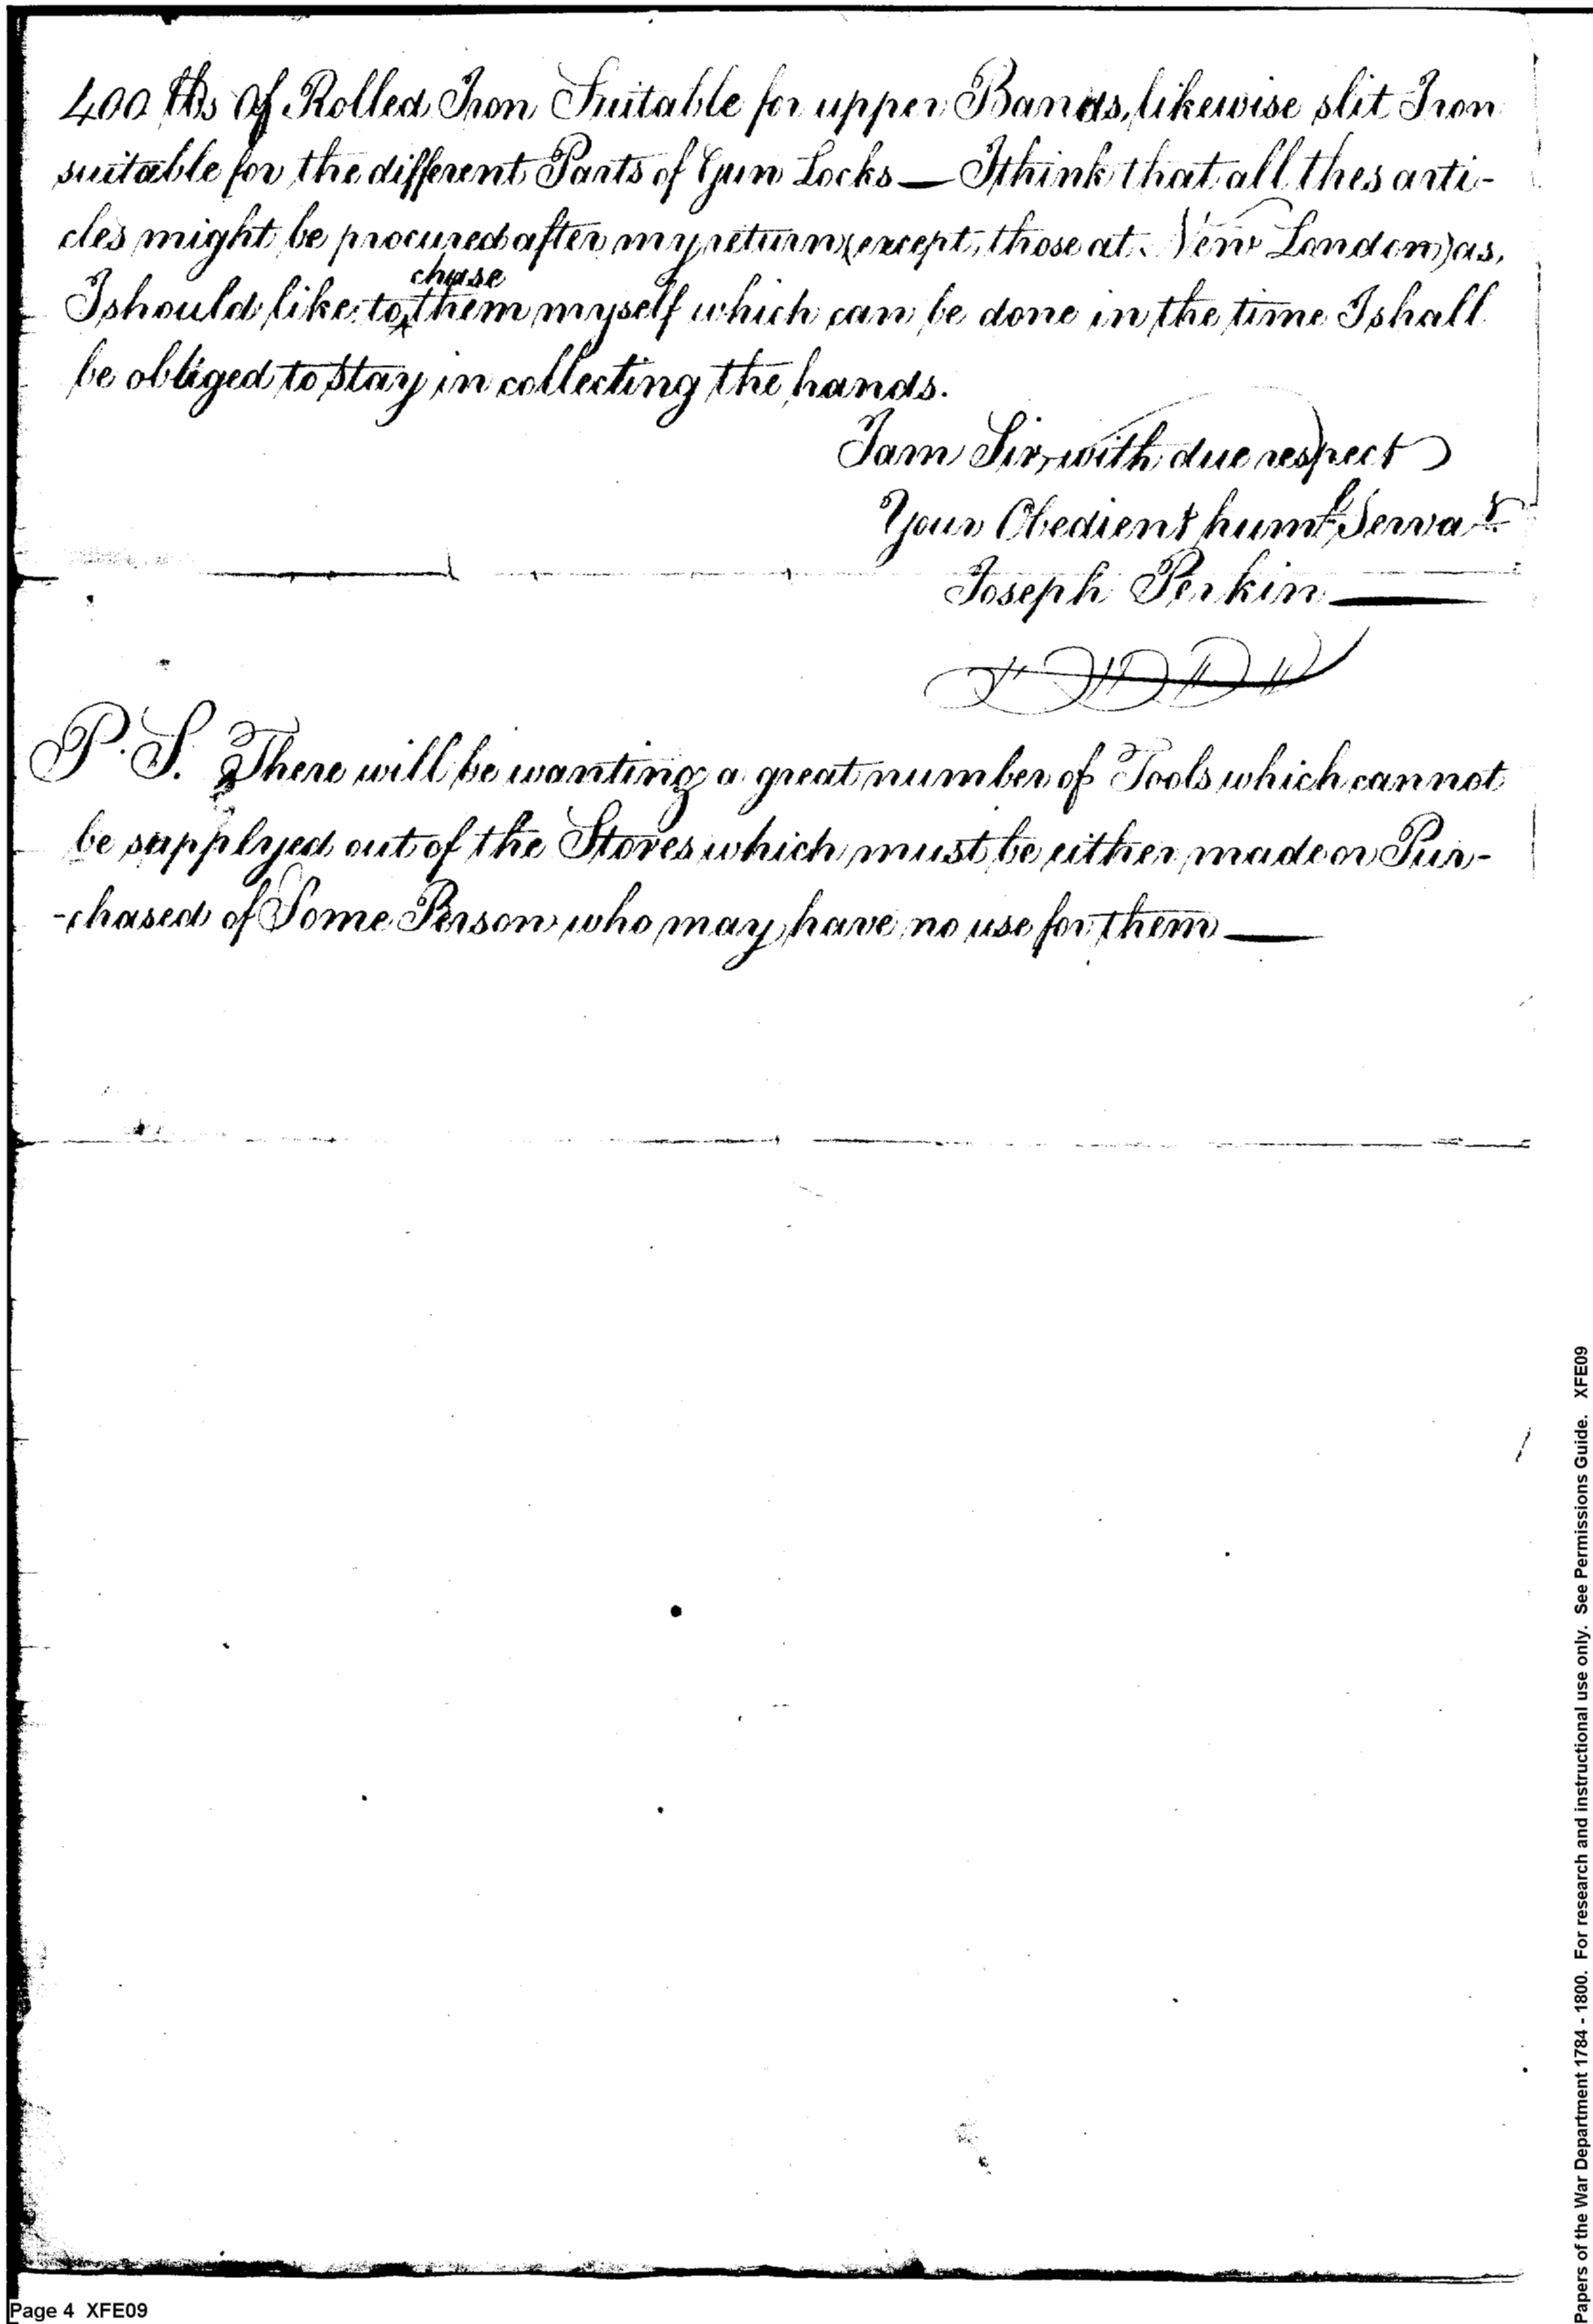 400 lbs Of Rolled Iron Suitable for upper Bands, likewise slit Iron
suitable for the different Parts of Gun Locks — I think that all thes arti-
cles might be procured after my return (except those at New London) as,
chuse
I should like to ^ them myself which can be done in the time I shall
be obliged to stay in collecting the hands.
I am Sir, with due respect
Your Obedient humle Servat
Joseph Perkin —
P. S. There will be wanting a great number of Tools which cannot
be supplyed out of the Stores which must be either made or Pur-
-chased of Some Person who may have no use for them —
Page 4 XFE09
Papers of the War Department 1784 - 1800. For research and instructional use only. See Permissions Guide. XFE09